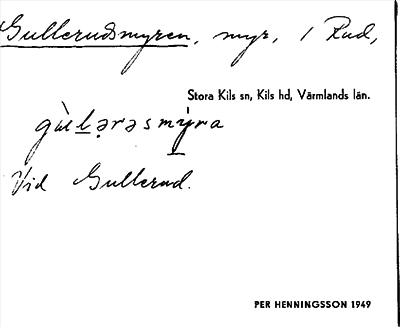 Gullerudsmyren, myr, i Rud,
Stora Kils sn, Kils hd, Värmlands län.
gùlərəsmýra
Vid Gullerud.
PER HENNINGSSON 1949